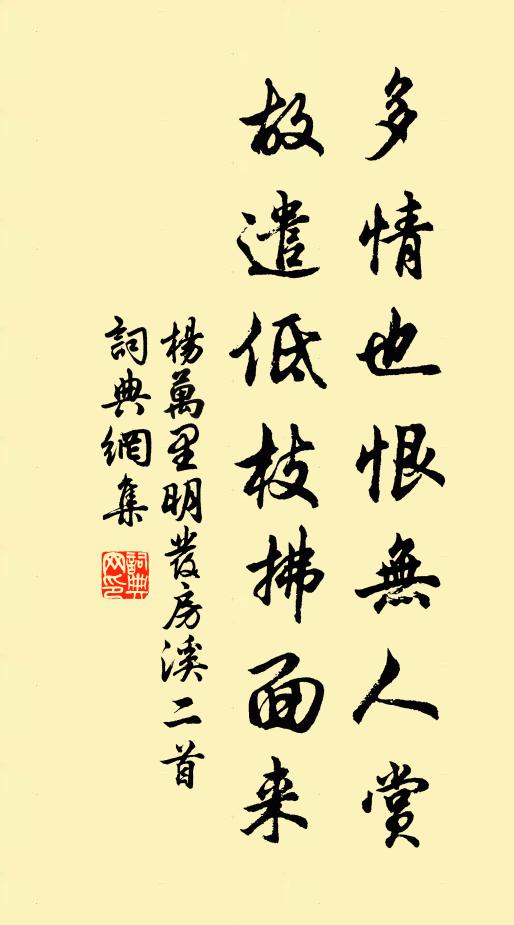 多情也恨無人賞
故遣低枝拂面来
楊萬里明發房溪二首
詞典網集
詞典
网印